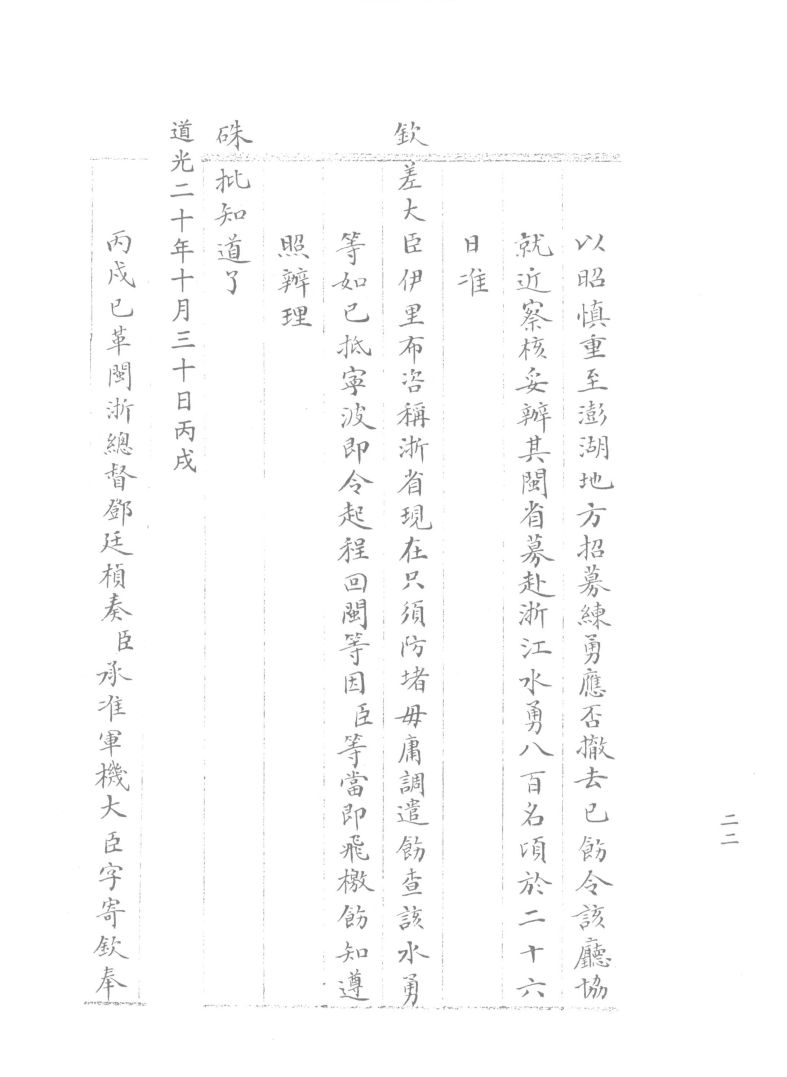 以昭慎重至澎湖地方招募練勇應否撤去已飭令該廳協
就近察核妥辦其閩省募赴浙江水勇八百名頃於二十六
日准
欽差大臣伊里布咨稱浙省現在只須防堵毋庸調遣飭查該水勇
等如已抵寧波即令起程回閩等因臣等當即飛檄飭知遵
照辦理
硃批知道了
道光二十年十月三十日丙戌
丙戌已革閩浙總督鄧廷楨奏臣承准軍機大臣字寄欽奉
二二